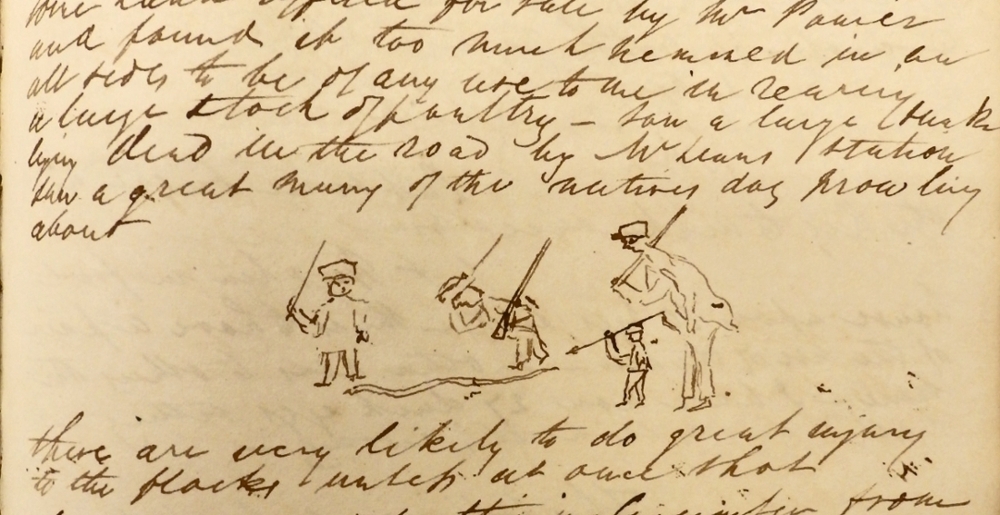 offered for sale by Mr
and found it too much hemmed in on
all sides to be of any use to me in rearing
a large stock of poultry – saw a large Snake
lying dead in the road by station
saw a great many of the natives dog prowling
about
these are very likely to do great injury
to the flocks unless at once shot
from